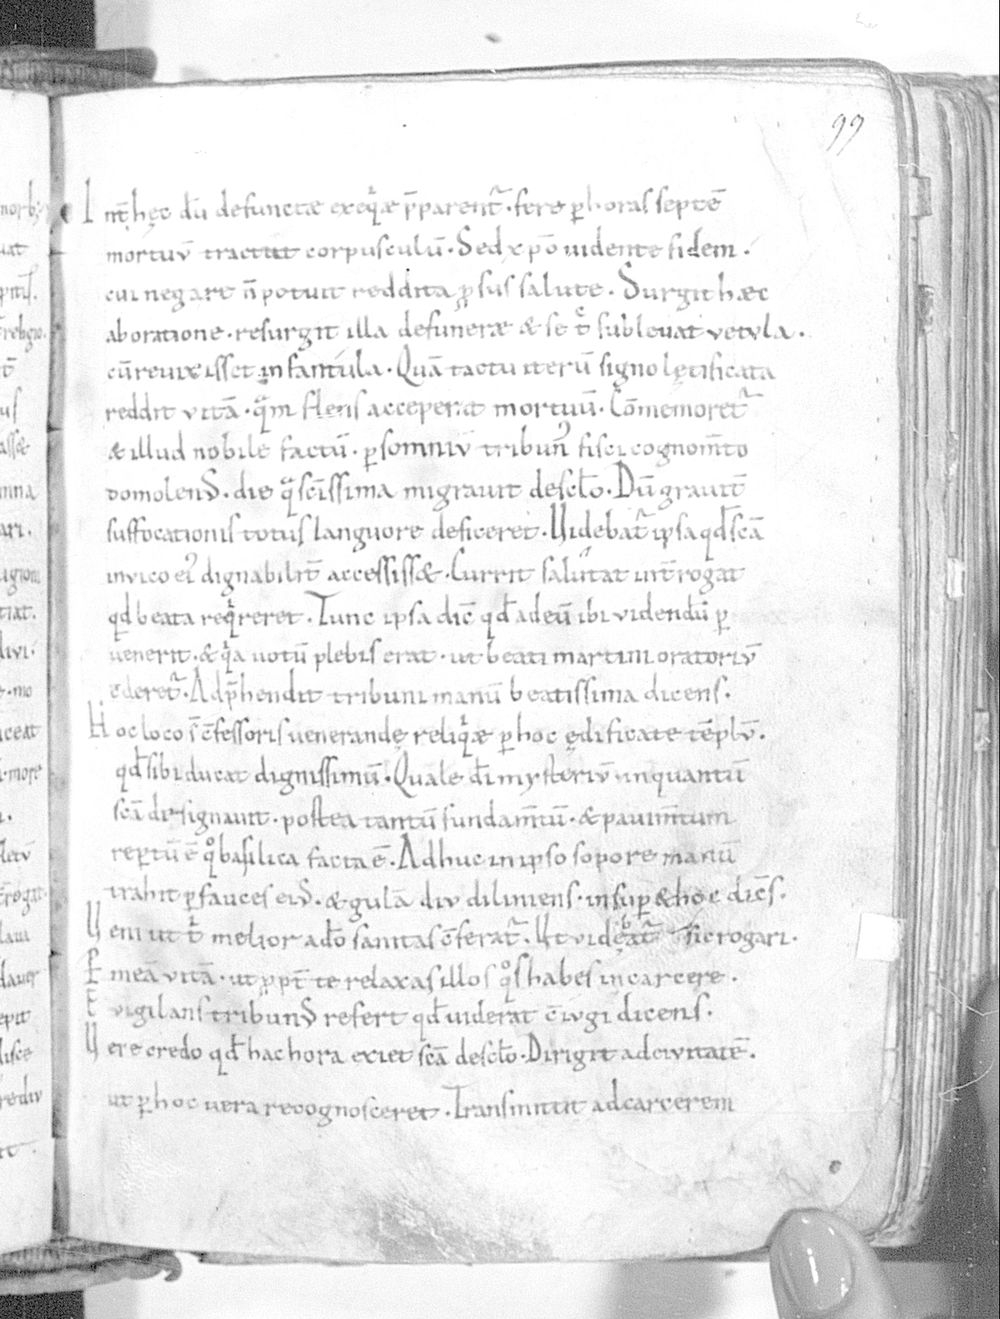 99
Int̄ hęc dū defunctæ exeqͥæ p̄parent᷑. fere ꝑ horas septē
mortuū tractat corpusculū. Sed xp̄o uidente fidem.
cui negare n̄ potuit reddita ꝓsus salute. Surgit hæc
ab oratione. resurgit illa de funeræ & se t̄ subleuat vetvla.
cū reuixisset infantula. Quā tactu iterū signo lętificata
reddit vitā. qͣm flens acceperat mortuū. Cōmemoret᷑
& illud nobile factū. ꝑ somniv tribuni fisci cognom̄to
domolenꝰ. die qͣ scīssima migrauit de sclō. Dū grauit̄
suffocationis totus languore deficeret. Uidebat᷑ ipsa qđ scā
in vico eiꝰ dignabilit̄ accessissæ. Currit salutat int̄rogat
qđ beata reqͥreret. Tunc ipsa dic̄ qđ ad eū ibi videndū ꝑ
uenerit. & qͥa uotū plebis erat. ut beati martini oratoriv̄
ederet᷑. Adp̄hendit tribuni manū beatissima dicens.
Hoc loco s̄ c̄fessoris uenerandę reliqͥæ ꝑ hoc ędificate tēplv̄.
qđ sibi ducat dignissimū. Quale dī mysteriv̄ inquantū
scā designauit. postea tantū fundam̄tū. & pauim̄tum
reꝑtū ē qͦ basilica facta ē. Adhuc in ipso sopore manū
trahit ꝑ fauces eiꝰ. & gulā div diliniens. insuꝑ & hoc dicēs.
Ueni ut t̄ melior a dō sanitas c̄ferat᷑. Ut videbat᷑ sic rogari.
P meā vitā. ut ꝓpt̄ te relaxas illos qͦs habes in carcere.
Evigilans tribunꝰ refert qđ uiderat c̄ivgi dicens.
Uere credo qđ hac hora exiet scā de sclō. Dirigit ad civitatē.
ut ꝑ hoc vera recognosceret. Transmittit ad carcerem